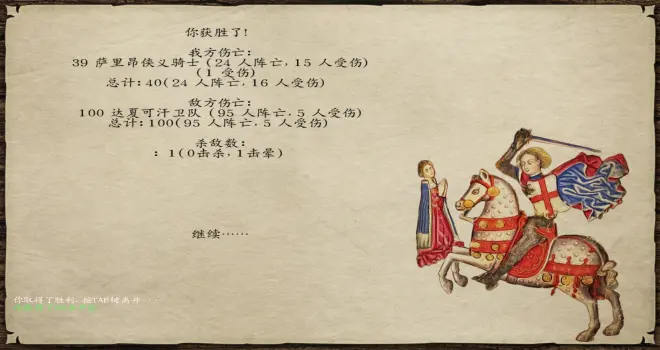 你获胜了!
我方伤亡:
39 萨里昂侠义骑士 (24 人阵亡, 15 人受伤)
(1 受伤)
总计: 40(24 人阵亡, 16 人受伤)
敌方伤亡:
100 达夏可汗卫队 (95 人阵亡, 5 人受伤)
总计: 100(95 人阵亡, 5 人受伤)
杀敌数:
: 1(0击杀, 1击晕)
继续……
你取得了胜利, 按TAB键离开...